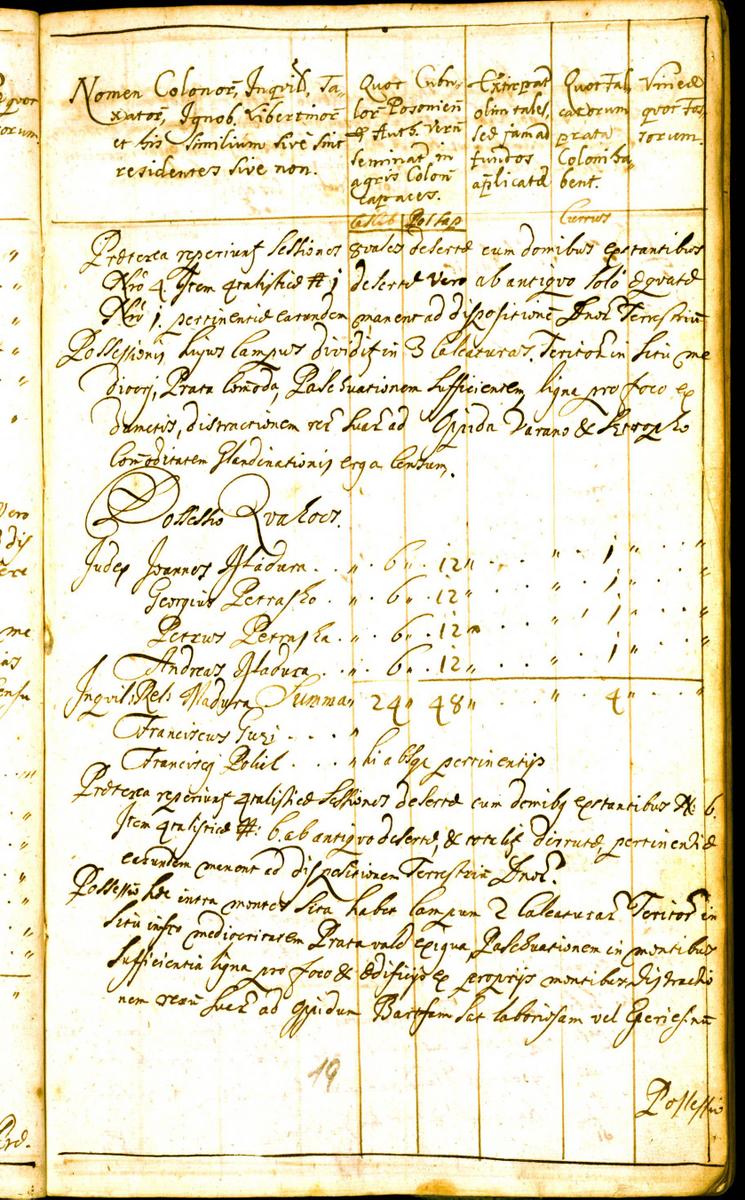 Nomen Colonor, Inqvil, Ta-
xator, Ignob. Libertinor
et his Similium sive sint
residentes sive non.
Quot Cubu-
lor Posonien
Auth. Vern
seminat in
agris Colon
capaces.
Extirpat
olim tales,
sed jam ad
fundos
applicatæ
Quot Fal-
catorum
prata
Coloni ha-
bent.
Vineæ
quot Fos-
sorum.
Currus
Præterea reperiunt Sessiones 8vales desertæ cum domibus extantibus
Nro 4 Item 4talisticæ # 1 desertæ vero ab antiqvo solo æqvatæ
Nro 1. pertinentiæ earundem manent ad dispositione Dnor Terrestriu
Possessionis hujus Campus dividit in 3 Calcaturas. Teritor in situ me
diocri, Prata Comoda, Pascuationem sufficientem, ligna pro foco ex
dumetis, distractionem rer suar ad Oppida Varano & Stropko
Comoditatem Glandinationis erga Censum.
Possessio Qvakocz.
Judex Joannes Madura . . „ . 6 „ . 12 „ . . . „ . . 1 „ . . „
Georgius Petrasko . „ . 6 „ . 12 „ . . . „ . . 1 „ . . „
Petrus Petraska . „ . 6 „ . 12 „ . . . „ . . 1 „ . . „
Andreas Madura . . „ . 6 „ . 12 „ . . . „ . . 1 „ . . „
Inqvil. Rel. Madura Summa „ 24 „ 48 „ . . „ . . 4 „ . . „
Franciscus Guzi . . . . „
Franciscq . . . „ hi absqe pertinentijs
Præterea reperiunt 4talisticæ Sessiones desertæ cum domibq extantibus N: 6.
Item 4talisticæ #: 6. ab antiqvo desertæ, & totalit dirrutæ, pertinentiæ
earundem manent ad dispositionem Terrestriu Dnor.
Possessio hæc intra montes sita habet Campum 2 Calcaturar Teritor in
situ infra mediocritatem Prata valde exigua, Pascuationem in montibus
sufficientia ligna pro foco & ædificijs ex proprijs montibus distractio
nem rerum suar ad oppidum Bartfam sat laboriosam vel Eperiesinu
19
Possessio